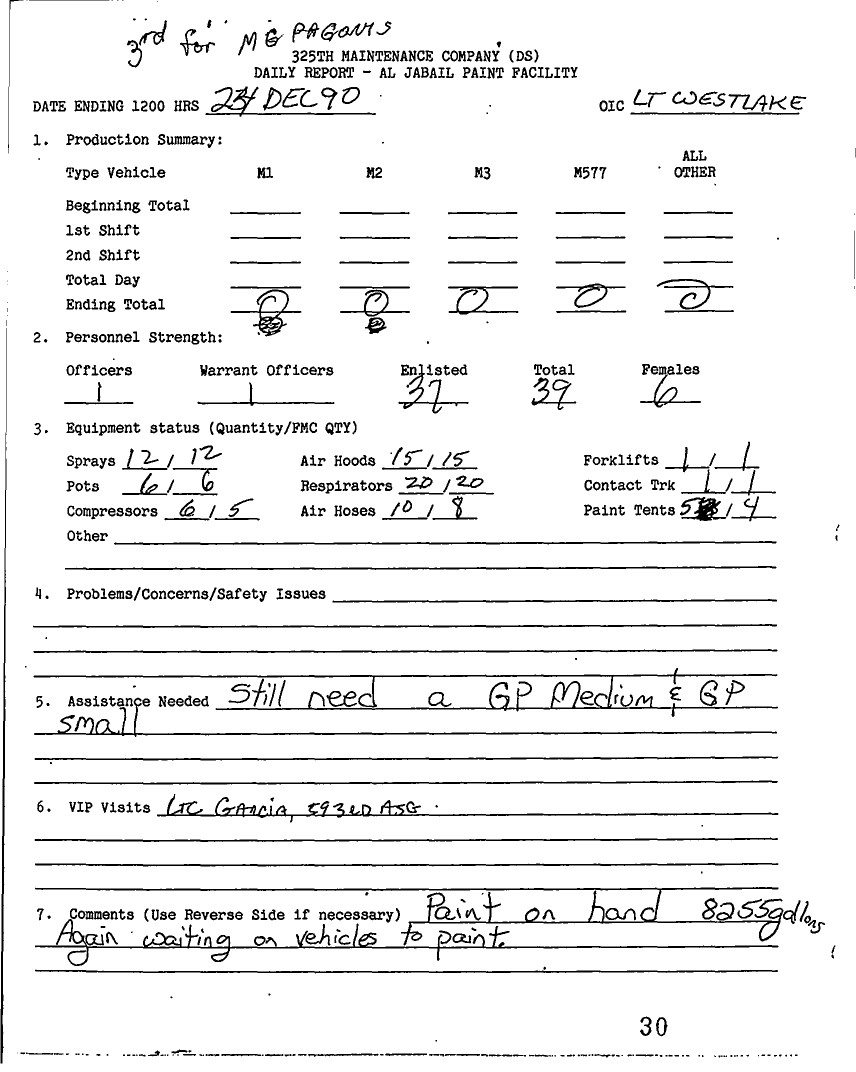 3rd for MG PAGONIS
325TH MAINTENANCE COMPANY (DS)
DAILY REPORT - AL JABAIL PAINT FACILITY
DATE ENDING 1200 HRS DEC 90 OIC LT WESTLAKE
1. Production Summary:
Type Vehicle M1 M2 M3 M577 ALL OTHER
Beginning Total
1st Shift
2nd Shift
Total Day
Ending Total 0 0 0 0 0
2. Personnel Strength:
Officers Warrant Officers Enlisted Total Females
1 1 37 39 6
3. Equipment status (Quantity/FMC QTY)
Sprays 12 / 12 Air Hoods 15 / 15 Forklifts 1 / 1
Pots 6 / 6 Respirators 20 / 20 Contact Trk 1 / 1
Compressors 6 / 5 Air Hoses 10 / 8 Paint Tents 5 / 4
Other
4. Problems/Concerns/Safety Issues
5. Assistance Needed Still need a GP Medium & GP
small
6. VIP Visits LTC GARCIA, 593RD ASG
7. Comments (Use Reverse Side if necessary) Paint on hand 8255 gallons
Again waiting on vehicles to paint.
30